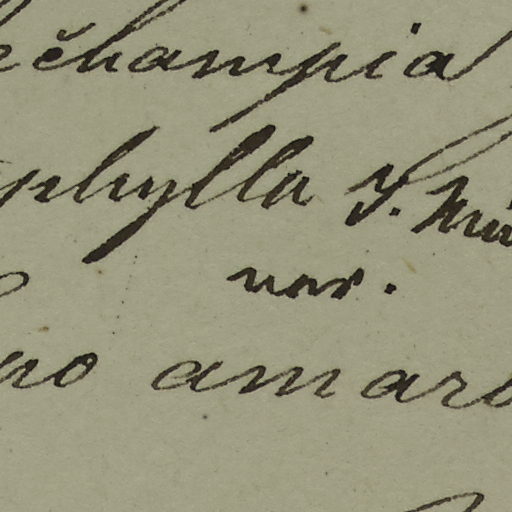 ečhampia
phylla J. Mü
var.
po amaro